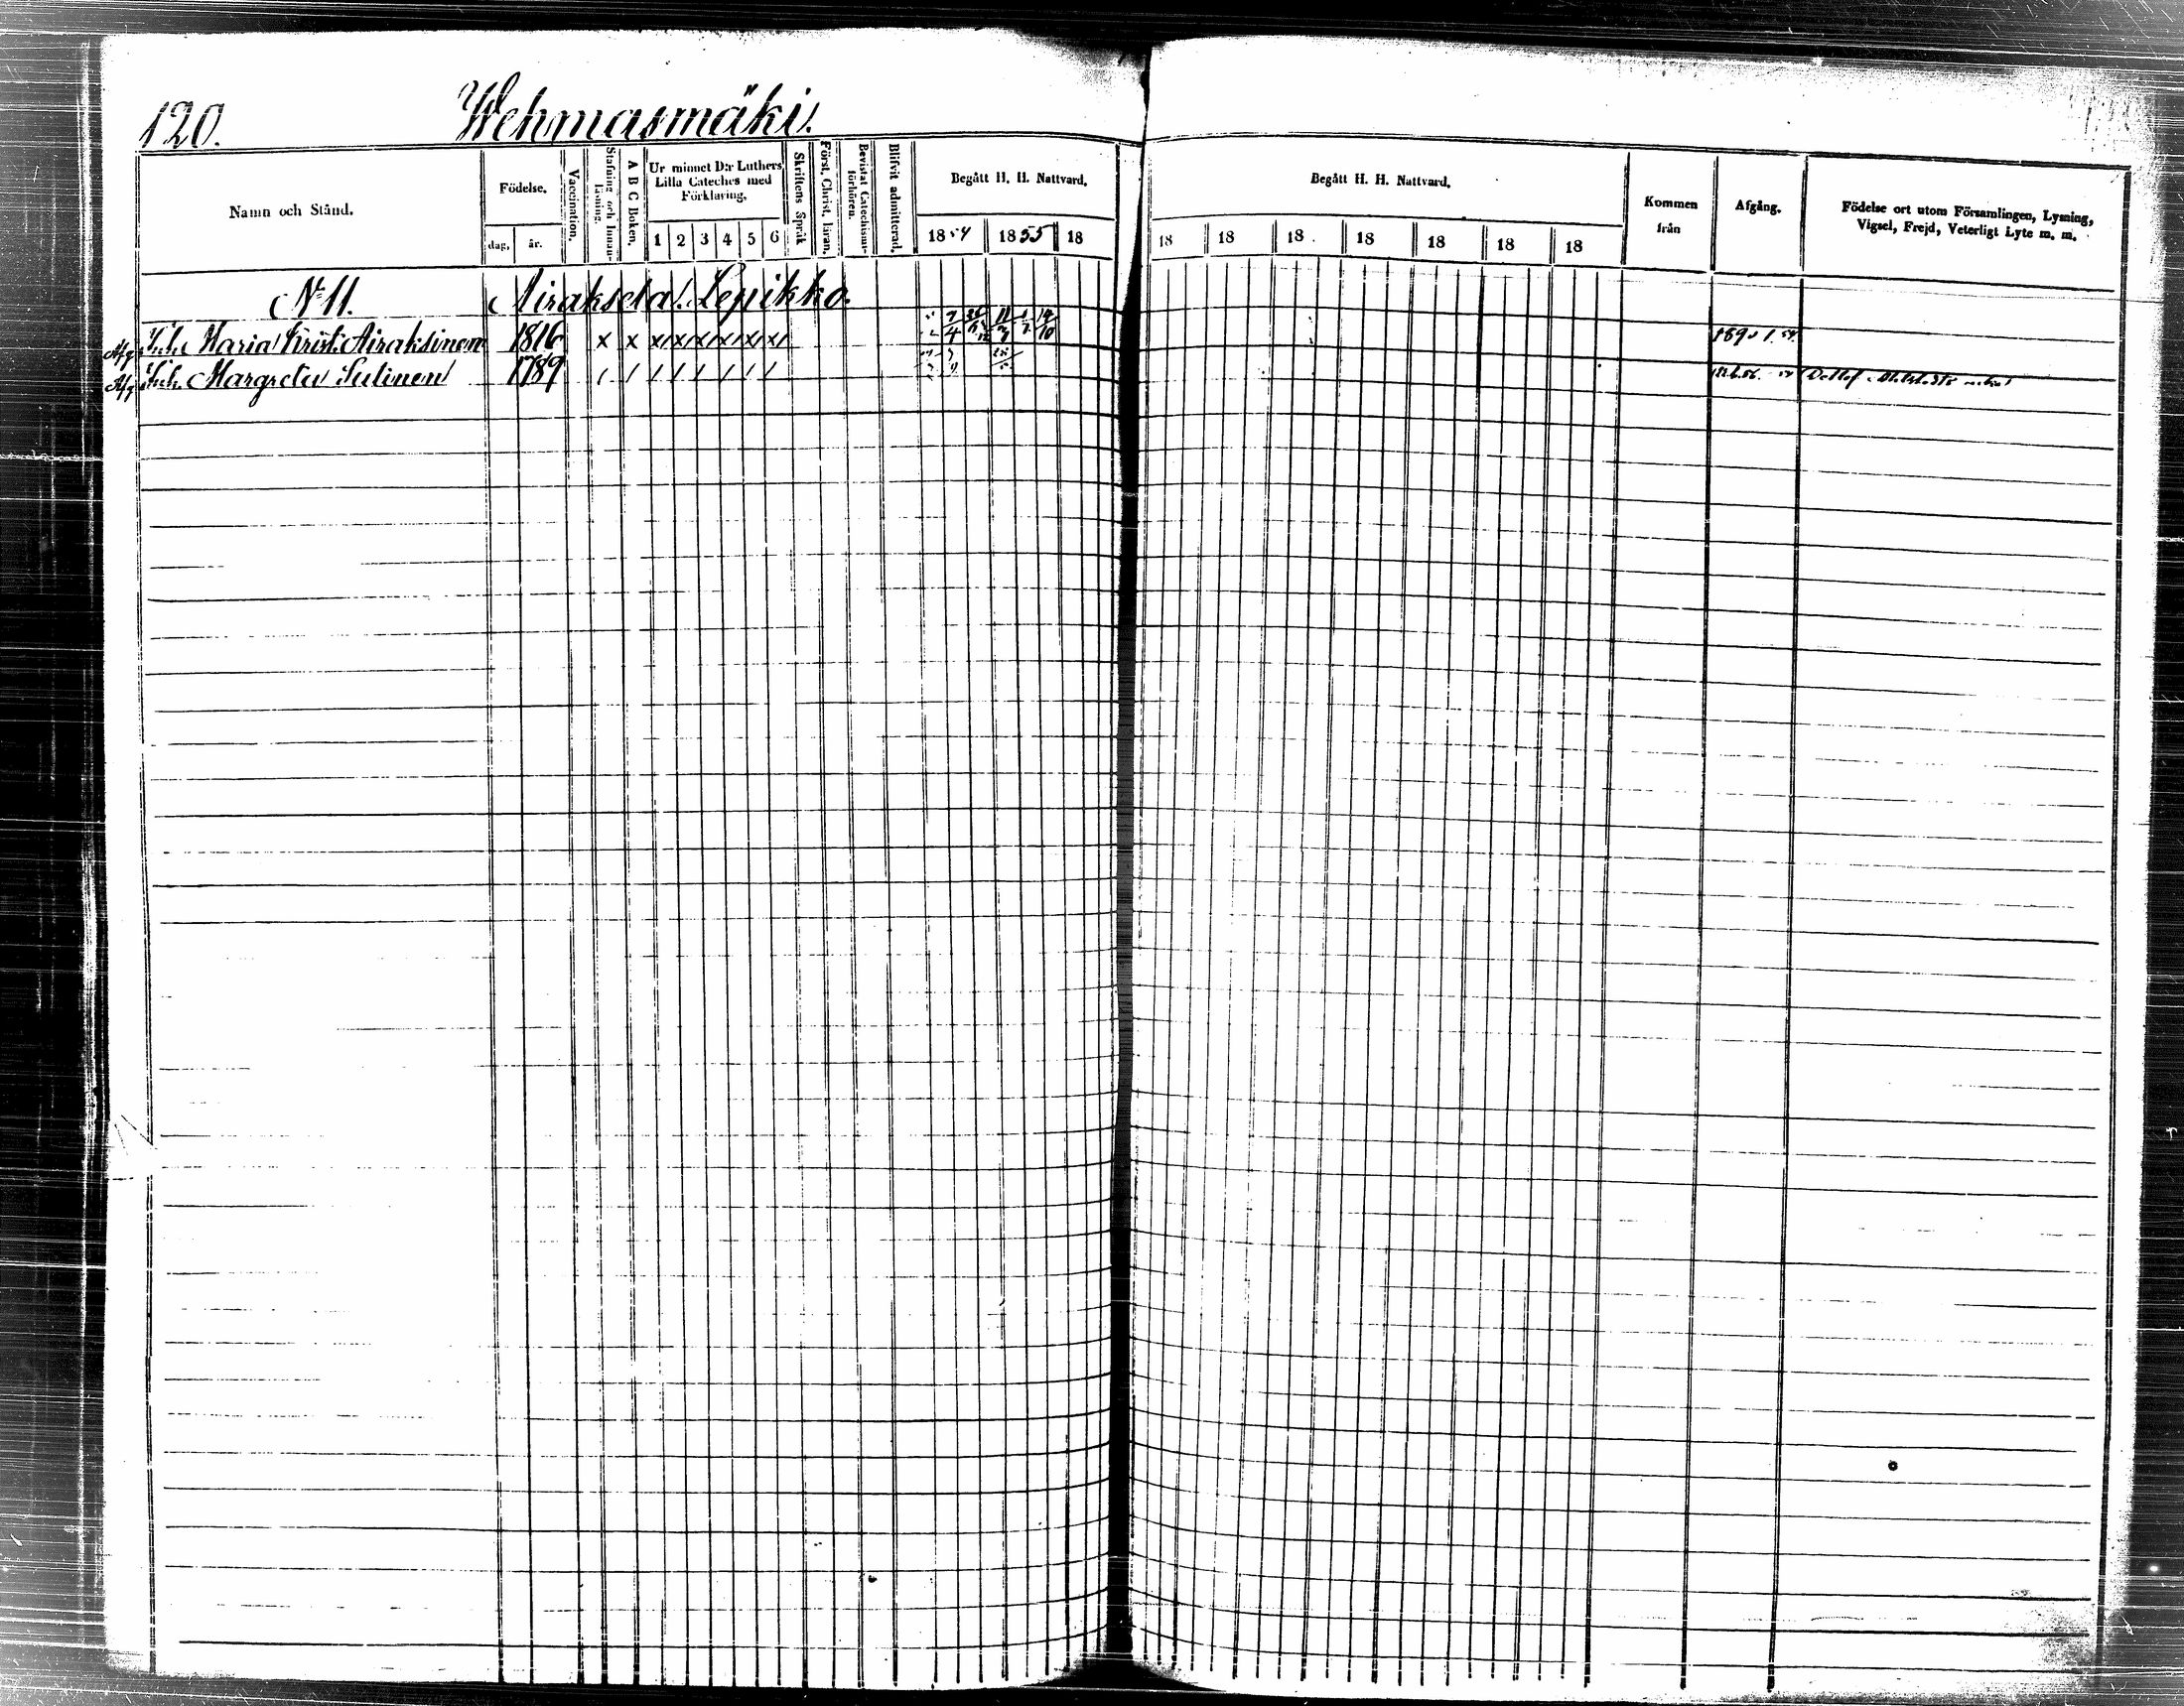 120. Wehmasmäki.
Namn och Stånd. Födelse. Vaccination. Stafning och Innanläsning. A B C Boken. Ur minnet D:r Luthers Lilla Cateches med Förklaring. Skriftens Språk Först. Christ. läran. Bevistat Catechismiförhören. Blifvit admitterad. Begått H. H. Nattvard. Begått H. H. Nattvard. Kommen från Afgång. Födelse ort utom Församlingen, Lysning, Vigsel, Frejd, Veterligt Lyte m. m.
dag, år. 1 2 3 4 5 6 1854 1855 18 18 18 18 18 18 18 18
№ 11. Airakseta! Lepikko.
Afg Maria Krist. Airaksinen 1816 x x x x x x x x
Afg Margreta Sutinen 1789 / / / / / / / / Detlef